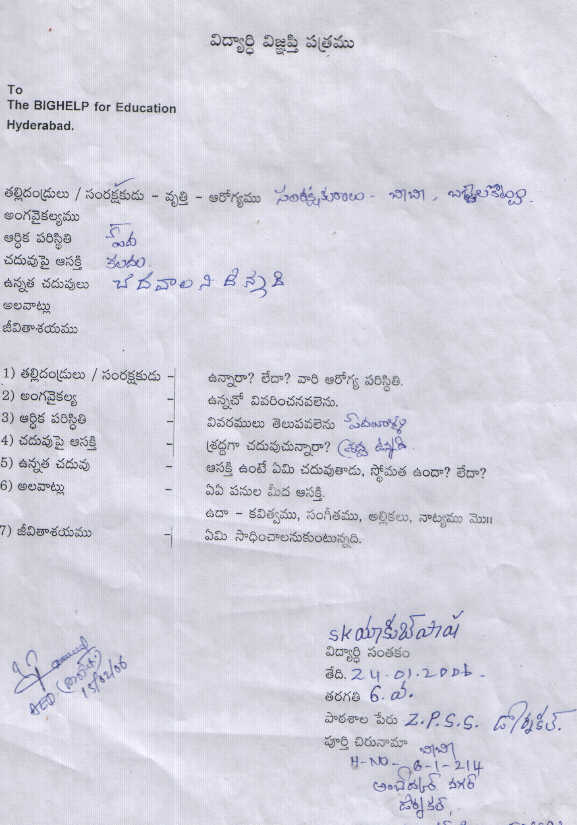 విద్యార్ధి విజ్ఞప్తి పత్రము
To
The BIGHELP for Education
Hyderabad.
తల్లిదండ్రులు / సంరక్షకుడు - వృత్తి - ఆరోగ్యము సంరక్షకురాలు - చాచి,
అంగవైకల్యము
ఆర్ధిక పరిస్థితి పేద
చదువుపై ఆసక్తి కలదు
ఉన్నత చదువులు చదవాలని ఉన్నది
అలవాట్లు
జీవితాశయము
1) తల్లిదండ్రులు / సంరక్షకుడు - ఉన్నారా? లేదా? వారి ఆరోగ్య పరిస్థితి.
2) అంగవైకల్య - ఉన్నచో వివరించవలెను.
3) ఆర్ధిక పరిస్థితి - వివరములు తెలుపవలెను పేదవాళ్ళు
4) చదువుపై ఆసక్తి - శ్రద్దగా చదువుచున్నారా? శ్రద్ధ ఉన్నది.
5) ఉన్నత చదువు - ఆసక్తి ఉంటే ఏమి చదువుతాడు, స్థోమత ఉందా? లేదా?
6) అలవాట్లు - ఏఏ పనుల మీద ఆసక్తి.
ఉదా - కవిత్వము, సంగీతము, అల్లికలు, నాట్యము మొ॥
7) జీవితాశయము - ఏమి సాధించాలనుకుంటున్నది.
sk యాకుబ్ పాష
విద్యార్ధి సంతకం
తేది. 24.01.2006.
తరగతి 6.వ.
పాఠశాల పేరు Z.P.S.S. డోర్నకల్.
పూర్తి చిరునామా చాచి
H-NO- 6-1-214
అంబేద్కర్ నగర్
డోర్నకల్,
15/02/06